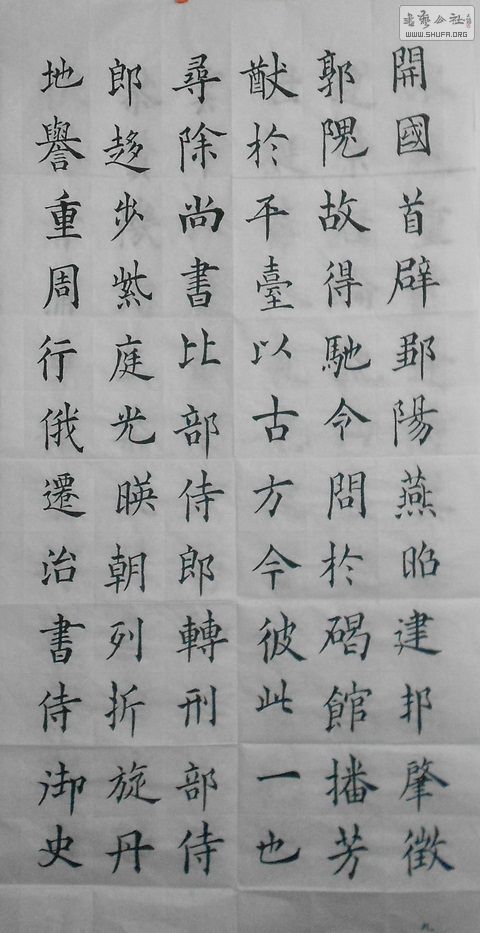 開國首辟鄒陽燕昭建邦肇徵
郭隗故得馳令問於碣館播芳
猷於平臺以古方今彼此一也
尋除尚書比部侍郎轉刑部侍
郎趍步紫庭光暎朝列折旋丹
地譽重周行俄遷治書侍御史
WWW.SHUFA.ORG
九